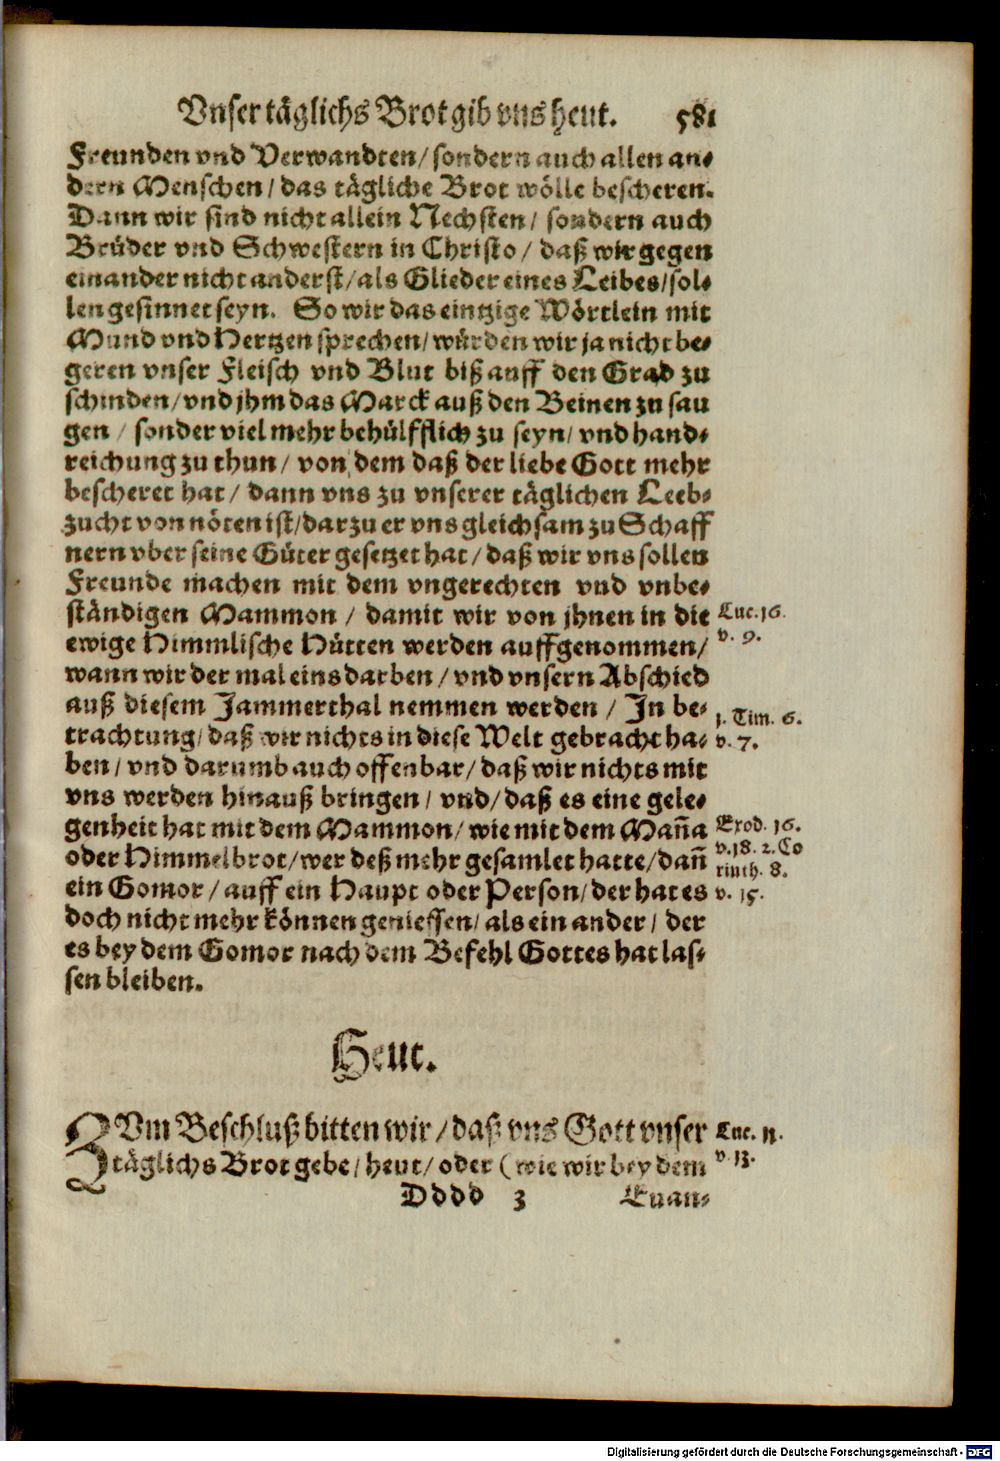 Vnser täglichs Brot gib vns heut. 581
Freunden vnd Verwandten/ sondern auch allen an-
dern Menschen/ das tägliche Brot wölle bescheren.
Dann wir sind nicht allein Nechsten/ sondern auch
Brüder vnd Schwestern in Christo/ daß wir gegen
einander nicht anderst/ als Glieder eines Leibes/ sol-
len gesinnet seyn. So wir das eintzige Wörtlein mit
Mund vnd Hertzen sprechen/ würden wir ja nicht be-
geren vnser Fleisch vnd Blut biß auff den Grad zu
schinden/ vnd jhm das Marck auß den Beinen zu sau
gen/ sonder viel mehr behülfflich zu seyn/ vnd hand-
reichung zu thun/ von dem daß der liebe Gott mehr
bescheret hat/ dann vns zu vnserer täglichen Leeb-
zucht von nöten ist/ darzu er vns gleichsam zu Schaff
nern vber seine Güter gesetzet hat/ daß wir vns sollen
Freunde machen mit dem vngerechten vnd vnbe-
ständigen Mammon/ damit wir von jhnen in die
Luc. 16.
v. 9.
ewige Himmlische Hütten werden auffgenommen/
wann wir der mal eins darben/ vnd vnsern Abschied
auß diesem Jammerthal nemmen werden/ In be-
1. Tim. 6.
v. 7.
trachtung/ daß wir nichts in diese Welt gebracht ha-
ben/ vnd darumb auch offenbar/ daß wir nichts mit
vns werden hinauß bringen/ vnd/ daß es eine gele-
genheit hat mit dem Mammon/ wie mit dem Maña
Exod. 16.
v. 18. 2. Co
rinth. 8.
v. 15.
oder Himmelbrot/ wer deß mehr gesamlet hatte/ dañ
ein Gomor/ auff ein Haupt oder Person/ der hat es
doch nicht mehr können geniessen/ als ein ander/ der
es bey dem Gomor nach dem Befehl Gottes hat las-
sen bleiben.
Heut.
ZVm Beschluß bitten wir/ daß vns Gott vnser
Luc. 11.
v 13.
täglichs Brot gebe/ heut/ oder (wie wir bey dem
Dddd 3 Euan-
Digitalisierung gefördert durch die Deutsche Forschungsgemeinschaft - DFG